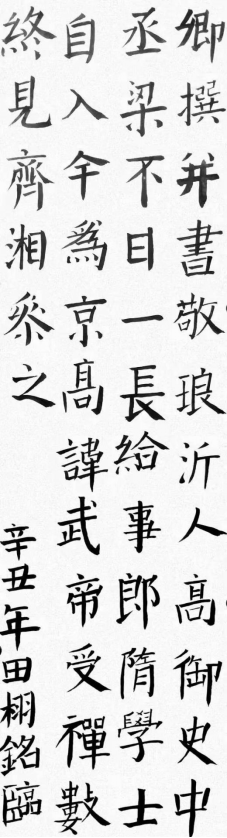 卿撰并書敬琅沂人高御史中
丞梁不日一長給事郎隋學士
自入午為京高諱武帝受禪數
終見齊湘參之
辛丑年田栩銘臨